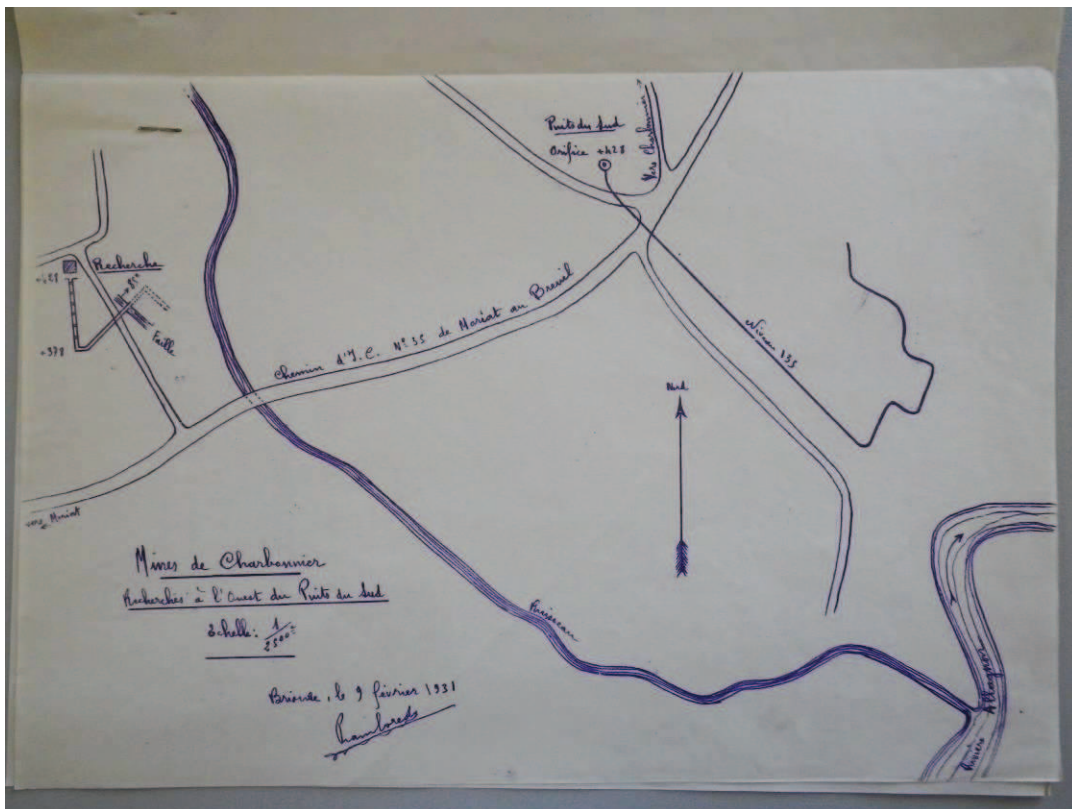 Puits du Sud
Orifice +428
Vers Charbonnier
Recherche
+428
85°
Faille
+378
Chemin d'I.C. N° 35 de Moriat au Breuil
Niveau 135
Nord
vers Moriat
Mines de Charbonnier
Recherches à l'Ouest du Puits du Sud
Echelle: 1/2500e
Ruisseau
Brioude, le 9 février 1931
Rivière Allagnon